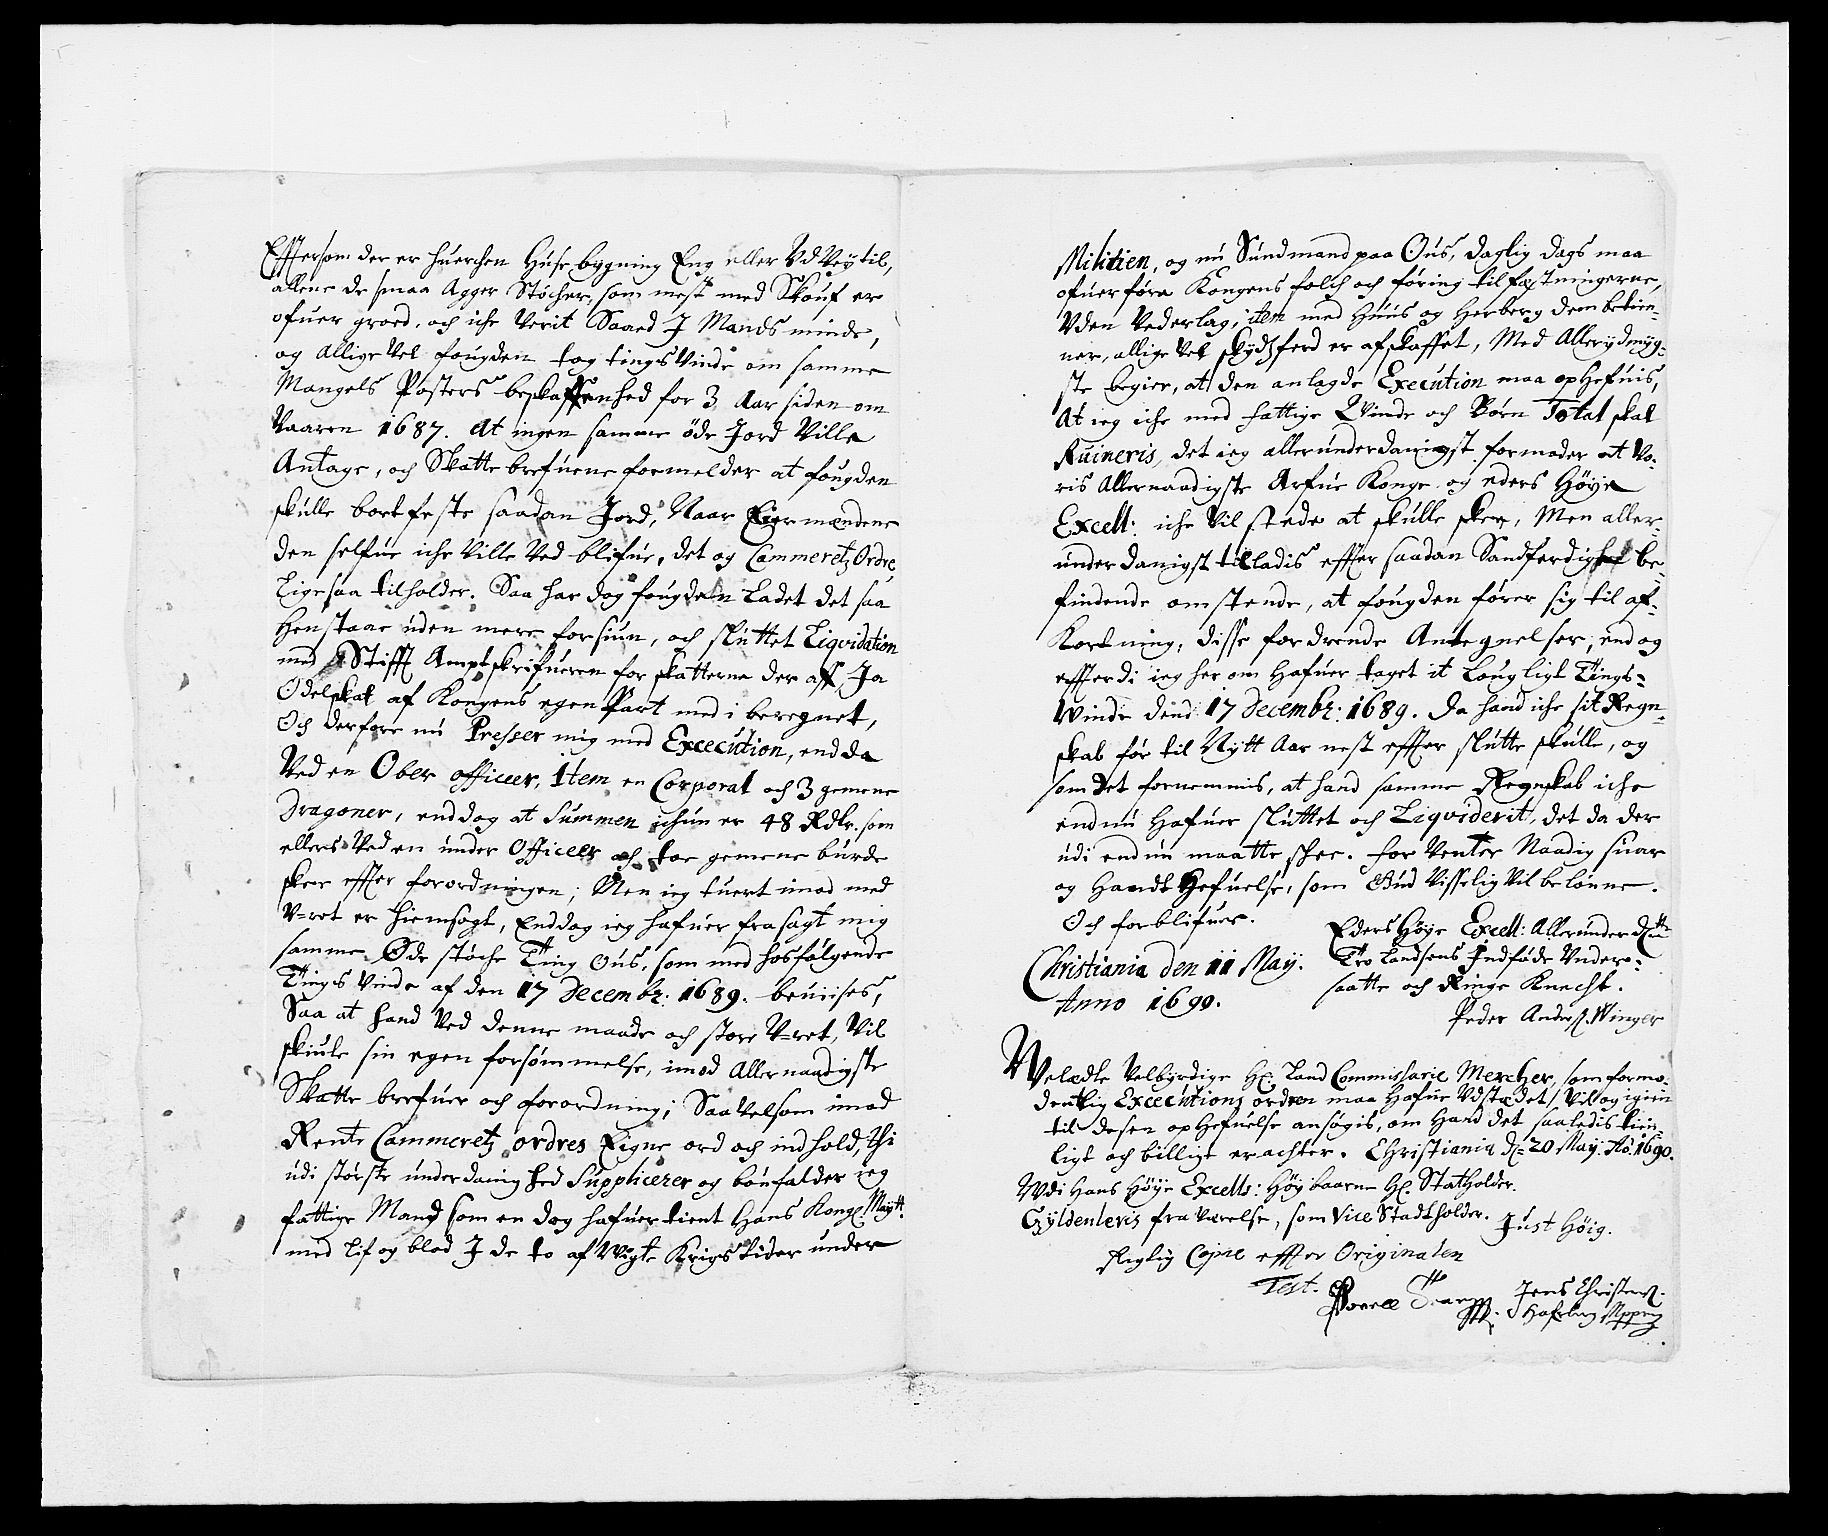 Efftersom der er huerchen Huse bygning Eng eller Vd Vey til,
allene de smaa Agger Støcher, som mest med Skouf er
ofuer groed, och iche Verit Saaed J Mands minde,
og Allige Vel fougden tog tings Vinde om samme
Mangels Posters beskaffenhed for 3 Aar siden om
Vaaren 1687. At ingen samme øde Jord Ville
Antage, och Skatte brefuene formelder at fougden
skulle bortfeste saadan Jord, Naar Eiermændene
den selfue iche Ville Ved blifue, det og Cammeretz Ordre
Ligesaa tilholder. Saa har dog fougden Ladet det saa
Henstaae uden mere forsiun, och sluttet Liqvidation
med Stifft Amptskrifueren for skatterne der aff, Ja
Odelskat af Kongens egen Part med i beregnet,
Och derfore nu Presser mig med Excecution, end da
Ved en Ober officeer, Item en Corporal och 3 gemene
Dragoner, enddog at Summen ichun er 48 Rdlr. som
ellers Ved en under Officeer och toe gemene burde
skee effter forordningen; Men ieg tuert imod med
V=ret er hiemsøgt, Enddog ieg hafuer frasagt mig
samme Øde støche Ting Ous, som med hosfølgende
Tings Vinde af den 17 Decembr: 1689. beuiises,
Saa at hand Ved denne maade och store V=ret, Vil
skiule sin egen forsømmelse, imod Allernaadigste
Skatte brefuer och forordning; Saa Velsom imod
Rente Cammeretz ordres Eigne ord och indhold, Thi
udi største underdanighed Supplicerer og bønfalder ieg
fattige Mand som en dog hafuer tient Hans Konge Maytt.
med lif og blod J de to af Wigte Krigs tider under
Militien, og nu Sundmand paa Ous, daglig dags maa
ofuerføre Kongens folch och føring til fæstningerne,
Vden Vederlag, item med Huus og Herberg dem betien-
ner, allige Vel skydtzferd er afskaffet, Med Allerydmyg-
ste begier, at den anlagde Execution maa ophefuis,
At ieg iche med fattige Qvinde och Børn Total skal
Ruineris, det ieg allerunderdanigst formoder at Vo-
ris Allernaadigste Arfue Konge og eders Høye
Excell: iche Vil stede at skulle skee, Men aller-
underdanigst tilladis effter saadan Sandferdighed be-
findende omstende, at fougden fører sig til af-
Kortning, disse fordrende Antegnelser, end og
effterdi ieg her om Hafuer taget it Lougligt Tings-
Winde dend 17 Decembr: 1689. Da hand iche sit Regn-
skab før til Nytt Aar nest effter slutte skulle, og
som det fornemmis, at hand samme Regnskab iche
endnu Hafuer sluttet och Liqviderit, det da der
udi endnu maatte skee. forVenter Naadig suar
og Handt Hefuelse, som Gud Visselig Vil belønne.
Och forblifuer.
Eders Høye Excell: Allerunderd:
Christiania den 11 May. Tro Landsens Indføde Vnder-
Anno 1690. saatte och Ringe Knecht.
Peder Anders. Winger
Welædle Velbyrdige Hr. Land Commissarie Mercher, som formo-
dentlig Excecutions ordren maa Hafue Vdstædet, Vil og igien
til desen ophefuelse ansøgis, om Hand det saaledis tien-
ligt och billigt erachter. Christiania d. 20 May Ao. 1690.
Wdi Hans Høye Excells: Høybaarne Hr. Statholder
Gyldenlevis fraværelse, som Vice Stadtholder. Just Høig.
Rigtig Copie effter Originalen
Test.
Jens Christens.